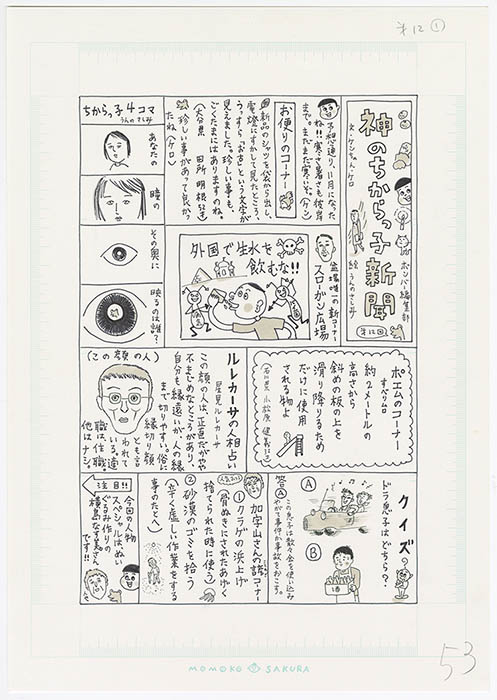 オ12①
神のちからっ子新聞
文・ケンちゃん・ケロ
ポンパ編集部
絵 うんのさしみ
第12回
予想通り、11月になったね!!寒さ暑さも彼岸まで。まだまだ寒いぞ。(ケン)
お便りのコーナー
新品のシャツを袋から出し、
電燈にすかして見たところ、
うっすら「太古」という文字が
見えました。珍しい事も、
ごくたまにはありますのね。
(大分県 田所 明根
珍しい事があって良かったね(ケロ)
ちからっ子4コマ
うんのさしみ
あなたの
瞳の
その奥に
映るのは誰?
盆場唯一の新コーナー
スローガン広場
外国で生水を
飲むな!!
ポエムのコーナー
すべり台
約2メートルの
高さから
斜めの板の上を
滑り降りるため
だけに使用
される物よ
(石川県 小松原 健
ルレカーサの人相占い
星見ルレカーサ
この顔の人は、正直だがやや
不まじめなところがあり、
自分も縁遠いが人の縁
まで切りやすい。俗に
縁切り顔
とも言
われて
いる。適
職は住職
他はナシ。
(この顔の人)
クイズ
ドラ息子はどちら?
Ⓐ
Ⓑ
酒
答Ⓐ
この息子は数々金を使い込み
やがて事件や事故をおこす。
人気
加字山さんの諺コーナー
①クラゲの浜上げ
(骨ぬきにされたあげく
捨てられた時に使う)
②砂漠のゴミを拾う
(辛く虚しい作業をする
事のたとえ)
注目!!
今回の人物
スペシャルは、ぬい
ぐるみ作りの
横島なす美さん
です!!
53
MOMOKO SAKURA